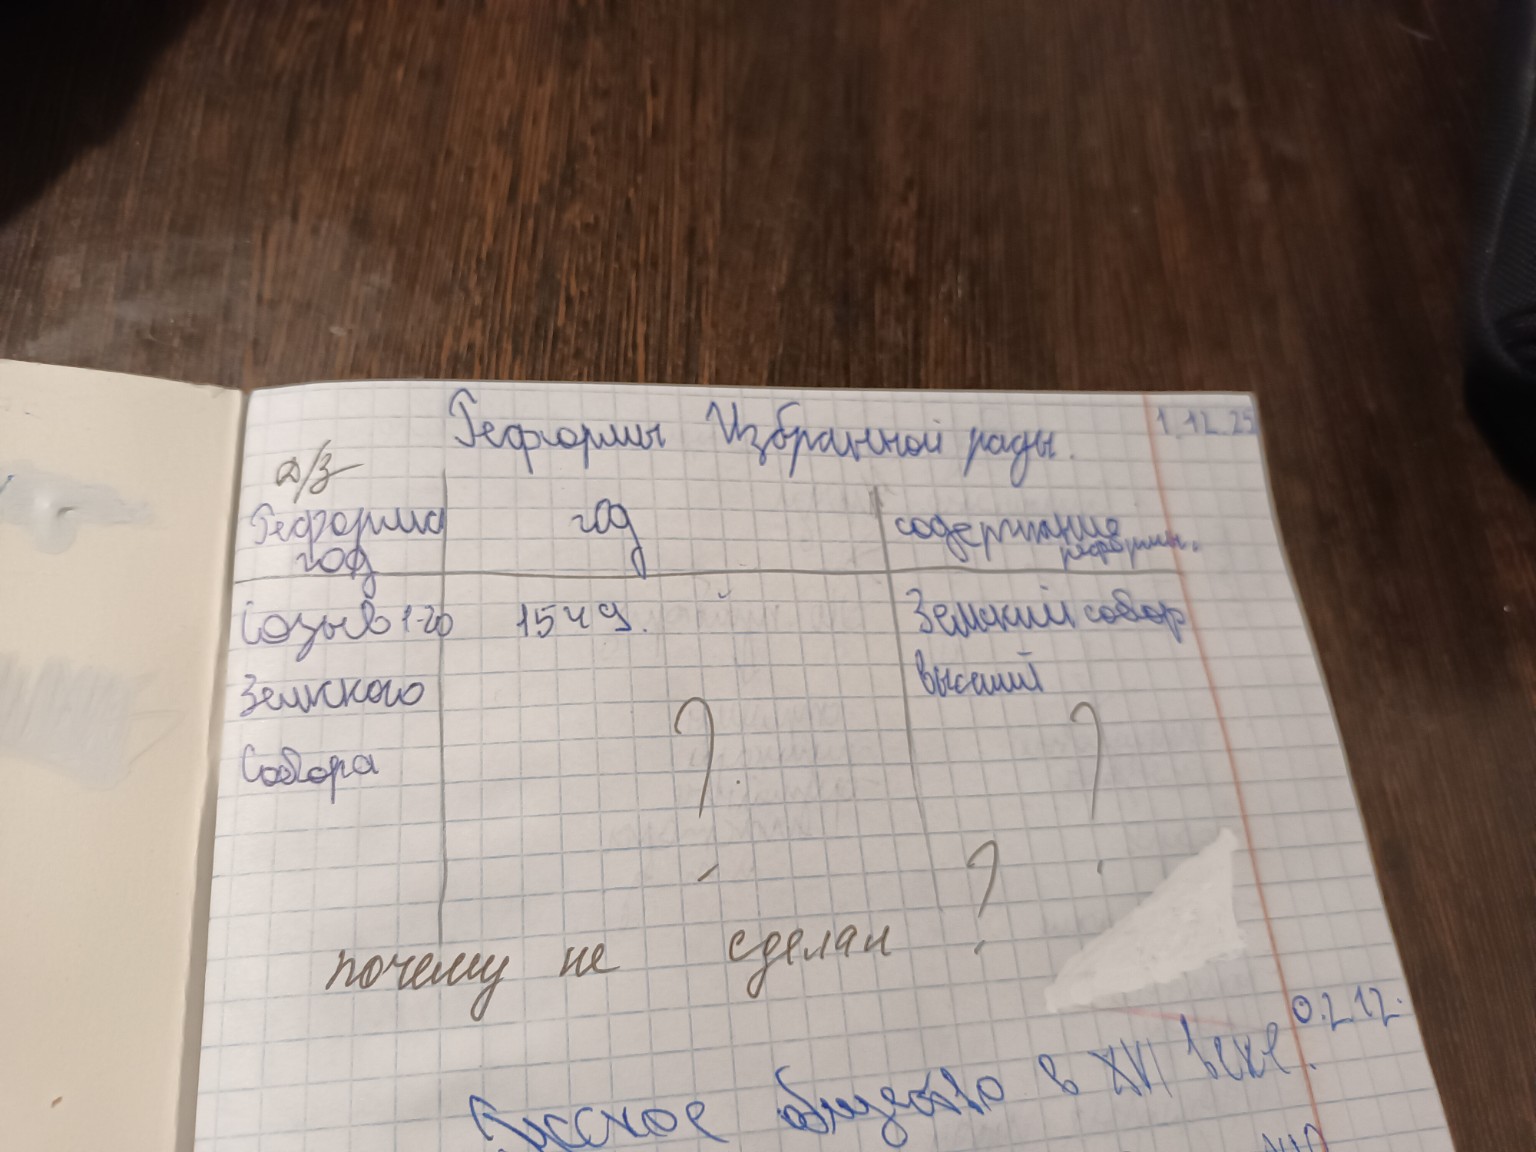 Реформы Избранной рады. 1.12.25
д/з
Реформа год содержание
год реформы.
Созыв 1-го 1549. Земский собор
Земского высший
Собора ? ?
почему не сделал ?
0.2 12.
Русское общество в XVI веке.